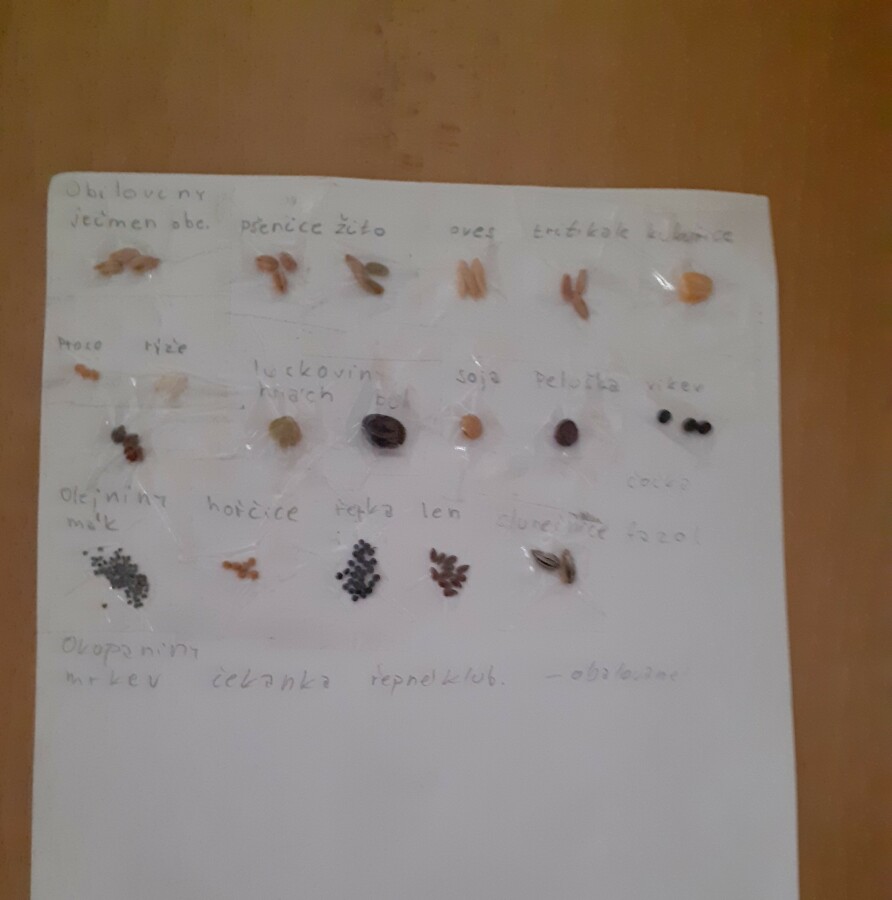 Obiloviny
ječmen obe. pšenice žito oves tritikale kukuřice
Proso rýže
luskoviny
hrách bob soja peluška vikev
čočka
Olejniny
mák hořčice řepka len slunečnice fazol
Okopaniny
mrkev čekanka řepné klub. - obalované